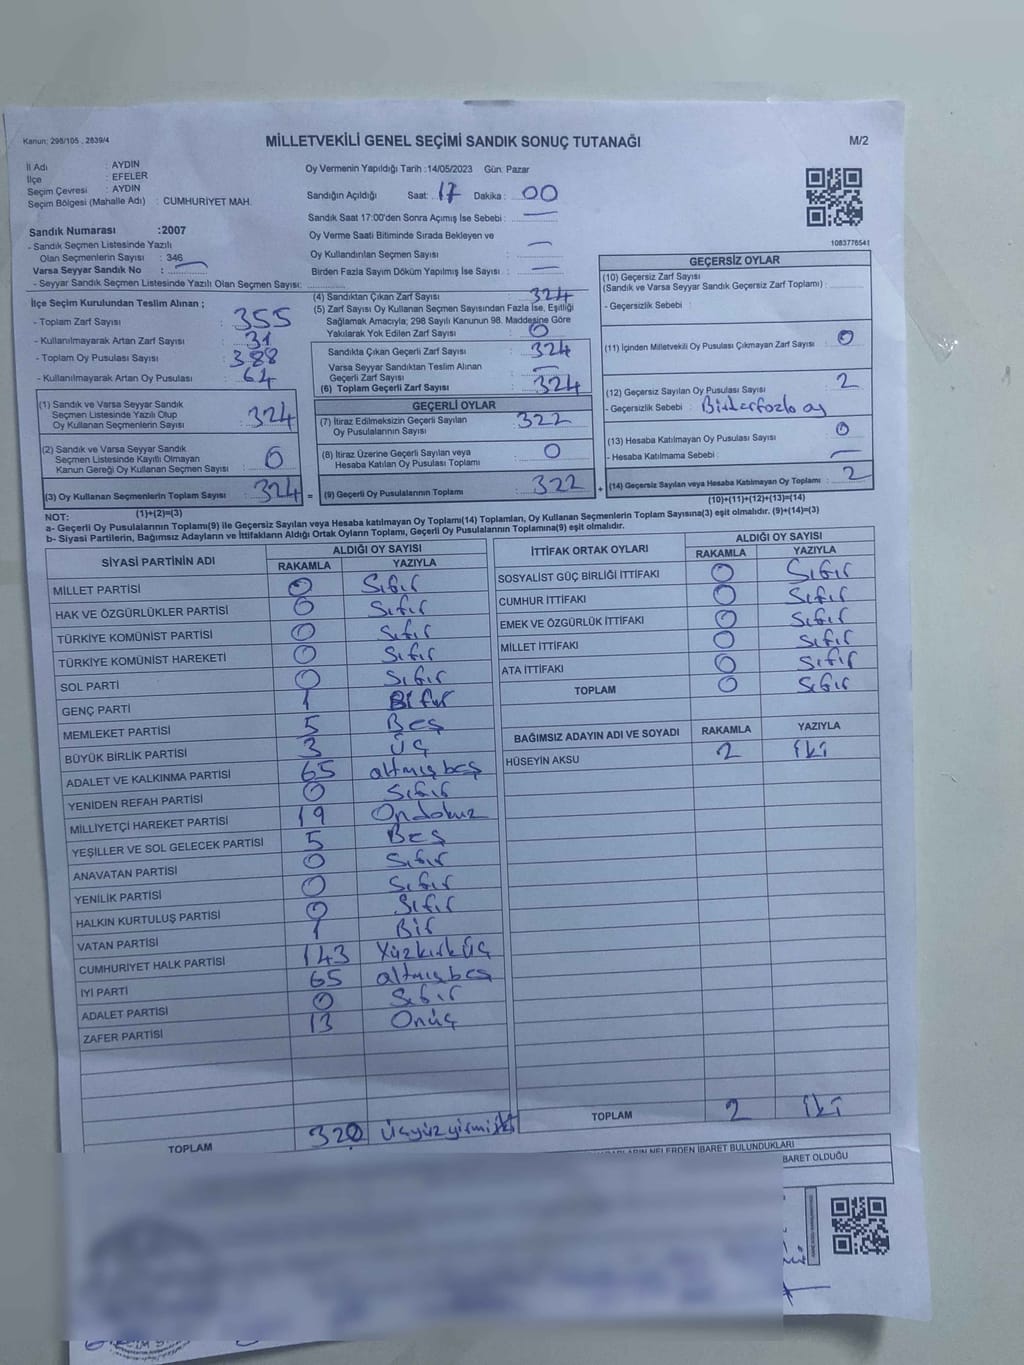 Kanun: 298/105 . 2839/4
MİLLETVEKİLİ GENEL SEÇİMİ SANDIK SONUÇ TUTANAĞI
M/2
İl Adı : AYDIN
İlçe : EFELER
Seçim Çevresi : AYDIN
Seçim Bölgesi (Mahalle Adı) : CUMHURİYET MAH.
Sandık Numarası :2007
- Sandık Seçmen Listesinde Yazılı
Olan Seçmenlerin Sayısı : 346
Varsa Seyyar Sandık No :
- Seyyar Sandık Seçmen Listesinde Yazılı Olan Seçmen Sayısı:
Oy Vermenin Yapıldığı Tarih :14/05/2023 Gün: Pazar
Sandığın Açıldığı Saat: 17 Dakika : 00
Sandık Saat 17:00'den Sonra Açımış İse Sebebi : —
Oy Verme Saati Bitiminde Sırada Bekleyen ve
Oy Kullandırılan Seçmen Sayısı : —
Birden Fazla Sayım Döküm Yapılmış İse Sayısı : —
1083776541
İlçe Seçim Kurulundan Teslim Alınan ;
- Toplam Zarf Sayısı : 355
- Kullanılmayarak Artan Zarf Sayısı : 31
- Toplam Oy Pusulası Sayısı : 388
- Kullanılmayarak Artan Oy Pusulası : 64
(1) Sandık ve Varsa Seyyar Sandık
Seçmen Listesinde Yazılı Olup
Oy Kullanan Seçmenlerin Sayısı : 324
(2) Sandık ve Varsa Seyyar Sandık
Seçmen Listesinde Kayıtlı Olmayan
Kanun Gereği Oy Kullanan Seçmen Sayısı : 0
(3) Oy Kullanan Seçmenlerin Toplam Sayısı : 324 =
(1)+(2)=(3)
(4) Sandıktan Çıkan Zarf Sayısı : 324
(5) Zarf Sayısı Oy Kullanan Seçmen Sayısından Fazla İse, Eşitliği
Sağlamak Amacıyla; 298 Sayılı Kanunun 98. Maddesine Göre
Yakılarak Yok Edilen Zarf Sayısı : 0
Sandıkta Çıkan Geçerli Zarf Sayısı : 324
Varsa Seyyar Sandıktan Teslim Alınan
Geçerli Zarf Sayısı : —
(6) Toplam Geçerli Zarf Sayısı : 324
GEÇERLİ OYLAR
(7) İtiraz Edilmeksizin Geçerli Sayılan
Oy Pusulalarının Sayısı : 322
(8) İtiraz Üzerine Geçerli Sayılan veya
Hesaba Katılan Oy Pusulası Toplamı : 0
(9) Geçerli Oy Pusulalarının Toplamı : 322 +
GEÇERSİZ OYLAR
(10) Geçersiz Zarf Sayısı
(Sandık ve Varsa Seyyar Sandık Geçersiz Zarf Toplamı) :
- Geçersizlik Sebebi :
(11) İçinden Milletvekili Oy Pusulası Çıkmayan Zarf Sayısı : 0
(12) Geçersiz Sayılan Oy Pusulası Sayısı : 2
- Geçersizlik Sebebi : Birden fazla oy
(13) Hesaba Katılmayan Oy Pusulası Sayısı : 0
- Hesaba Katılmama Sebebi : —
(14) Geçersiz Sayılan veya Hesaba Katılmayan Oy Toplamı : 2
(10)+(11)+(12)+(13)=(14)
NOT:
a- Geçerli Oy Pusulalarının Toplamı(9) ile Geçersiz Sayılan veya Hesaba katılmayan Oy Toplamı(14) Toplamları, Oy Kullanan Seçmenlerin Toplam Sayısına(3) eşit olmalıdır. (9)+(14)=(3)
b- Siyasi Partilerin, Bağımsız Adayların ve İttifakların Aldığı Ortak Oyların Toplamı, Geçerli Oy Pusulalarının Toplamına(9) eşit olmalıdır.
SİYASİ PARTİNİN ADI ALDIĞI OY SAYISI
RAKAMLA YAZIYLA
MİLLET PARTİSİ 0 Sıfır
HAK VE ÖZGÜRLÜKLER PARTİSİ 0 Sıfır
TÜRKİYE KOMÜNİST PARTİSİ 0 Sıfır
TÜRKİYE KOMÜNİST HAREKETİ 0 Sıfır
SOL PARTİ 0 Sıfır
GENÇ PARTİ 1 Bir
MEMLEKET PARTİSİ 5 Beş
BÜYÜK BİRLİK PARTİSİ 3 Üç
ADALET VE KALKINMA PARTİSİ 65 altmışbeş
YENİDEN REFAH PARTİSİ 0 Sıfır
MİLLİYETÇİ HAREKET PARTİSİ 19 Ondokuz
YEŞİLLER VE SOL GELECEK PARTİSİ 5 Beş
ANAVATAN PARTİSİ 0 Sıfır
YENİLİK PARTİSİ 0 Sıfır
HALKIN KURTULUŞ PARTİSİ 0 Sıfır
VATAN PARTİSİ 1 Bir
CUMHURİYET HALK PARTİSİ 143 Yüzkırküç
İYİ PARTİ 65 altmışbeş
ADALET PARTİSİ 0 Sıfır
ZAFER PARTİSİ 13 Onüç
TOPLAM 320 Üçyüzyirmi
İTTİFAK ORTAK OYLARI ALDIĞI OY SAYISI
RAKAMLA YAZIYLA
SOSYALİST GÜÇ BİRLİĞİ İTTİFAKI 0 Sıfır
CUMHUR İTTİFAKI 0 Sıfır
EMEK VE ÖZGÜRLÜK İTTİFAKI 0 Sıfır
MİLLET İTTİFAKI 0 Sıfır
ATA İTTİFAKI 0 Sıfır
TOPLAM 0 Sıfır
BAĞIMSIZ ADAYIN ADI VE SOYADI RAKAMLA YAZIYLA
HÜSEYİN AKSU 2 iki
TOPLAM 2 iki
NELERDEN İBARET BULUNDUKLARI
İBARET OLDUĞU